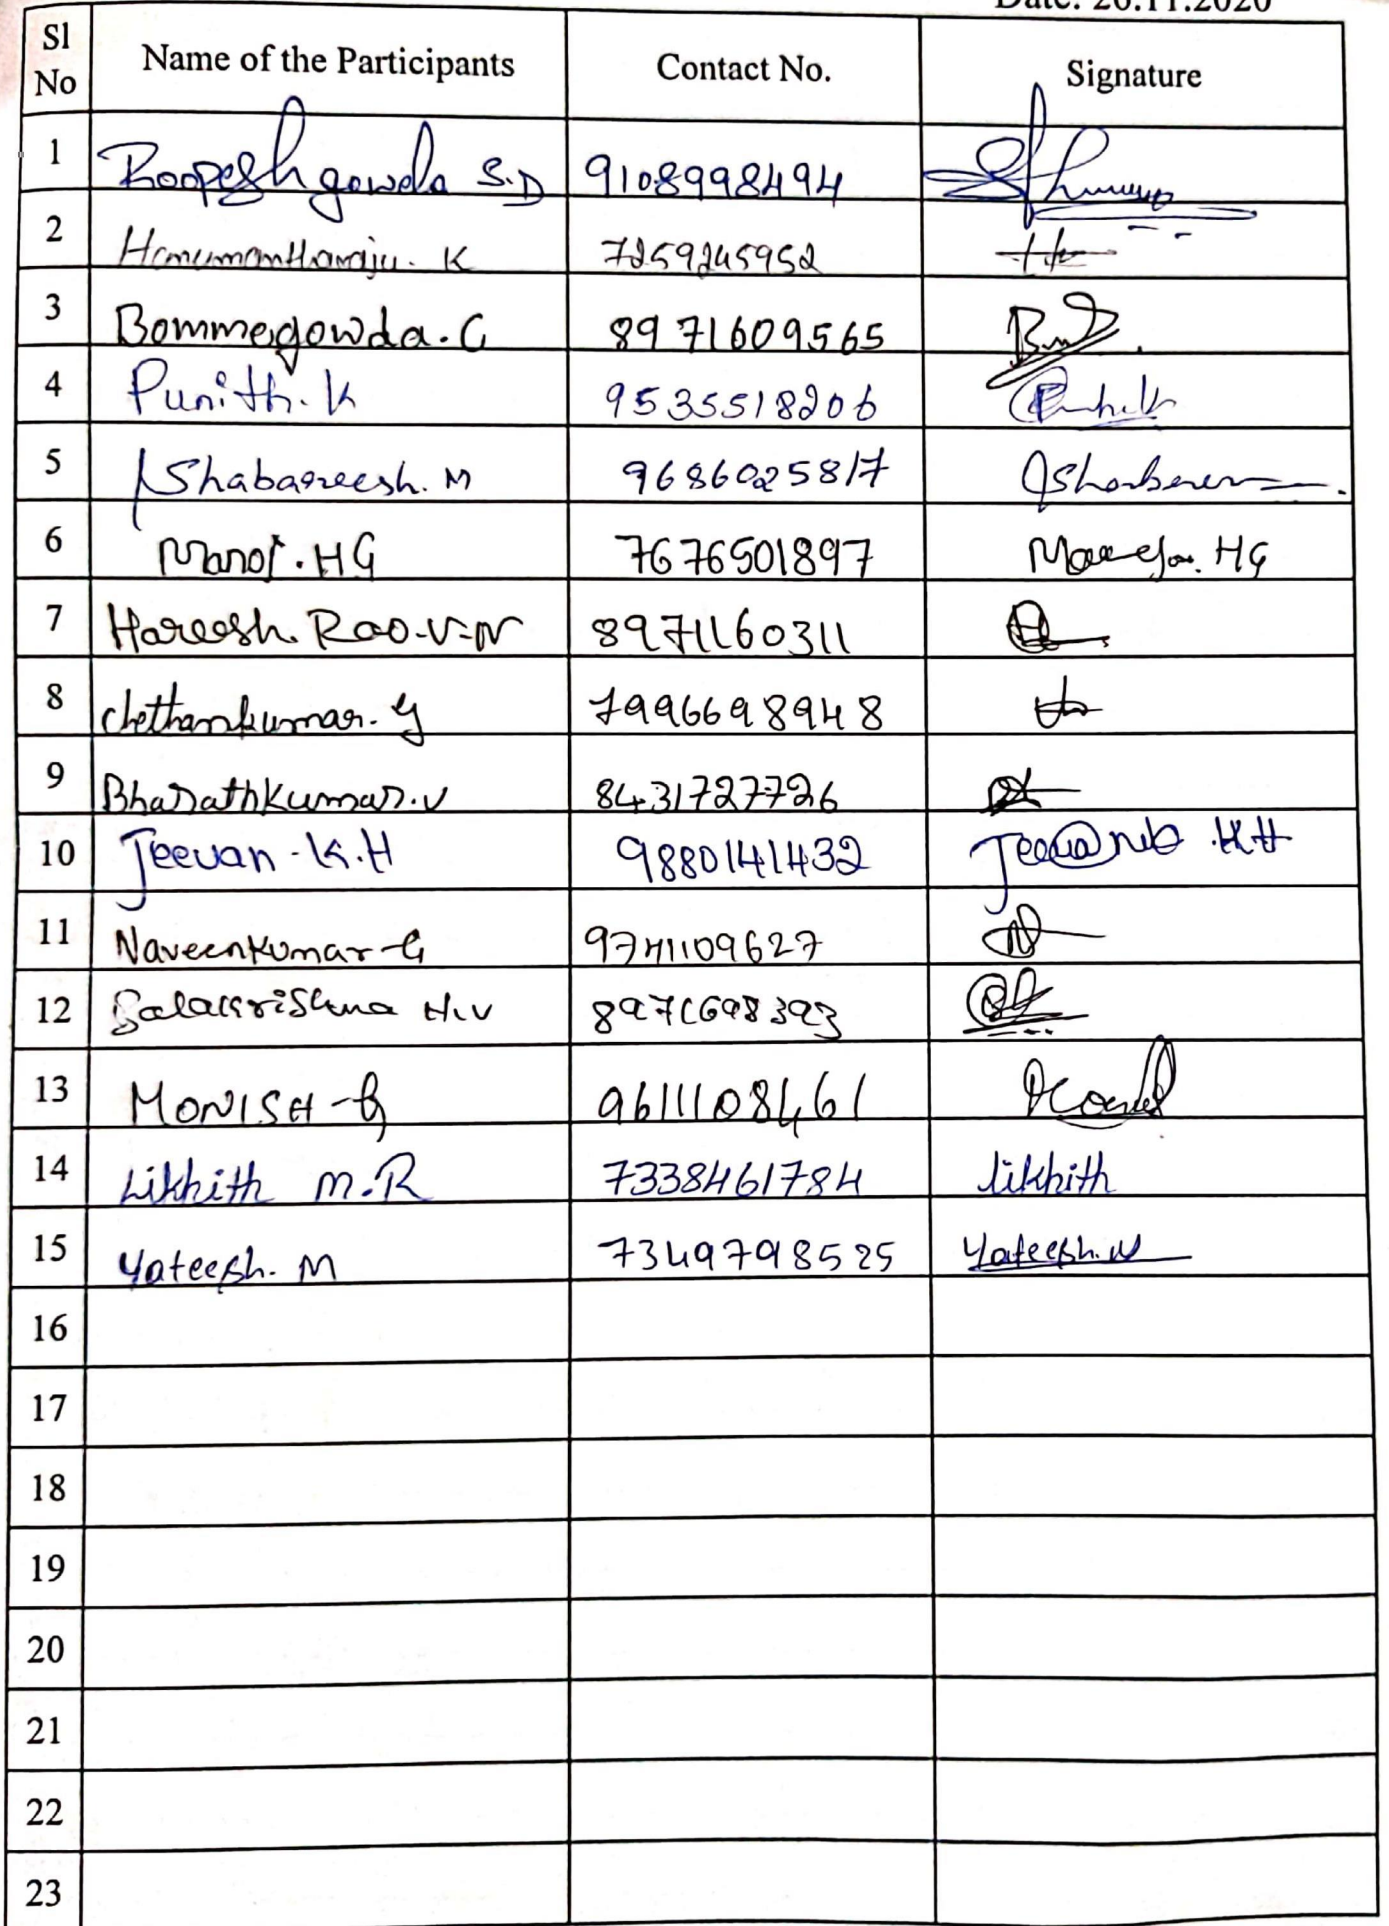 Date: 26.11.2020
Sl No Name of the Participants Contact No. Signature
1 Roopesh gowda S.D 9108998494
2 Hanumantharaju. K 7259245952
3 Bommegowda. C 8971609565
4 Punith. K 9535518206
5 Shabareesh. M 9686025817
6 Manoj. HG 7676501897 HG
7 Hareesh. Rao. V-N 8971160311
8 Chethankumar. y 7996698948
9 Bharathkumar. v 8431727726
10 Jeevan - K.H 9880141432 K.H
11 Naveenkumar - G 9741109627
12 Balakrishna H.V 8971698393
13 MONISH - G 9611108461
14 Likhith M.R 7338461784 likhith
15 Yateesh. M 7349798525 Yateesh. M
16
17
18
19
20
21
22
23